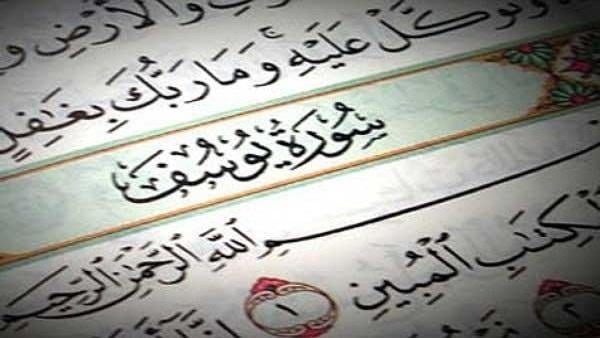 وَٱلْأَرْضِ
وَتَوَكَّلْ عَلَيْهِ ۚ وَمَا رَبُّكَ بِغَٰفِلٍ
سُورَةُ يُوسُفَ
بِسْمِ ٱللَّهِ ٱلرَّحْمَٰنِ ٱلرَّحِيمِ
ٱلْكِتَٰبِ ٱلْمُبِينِ ١ إِنَّآ
٢